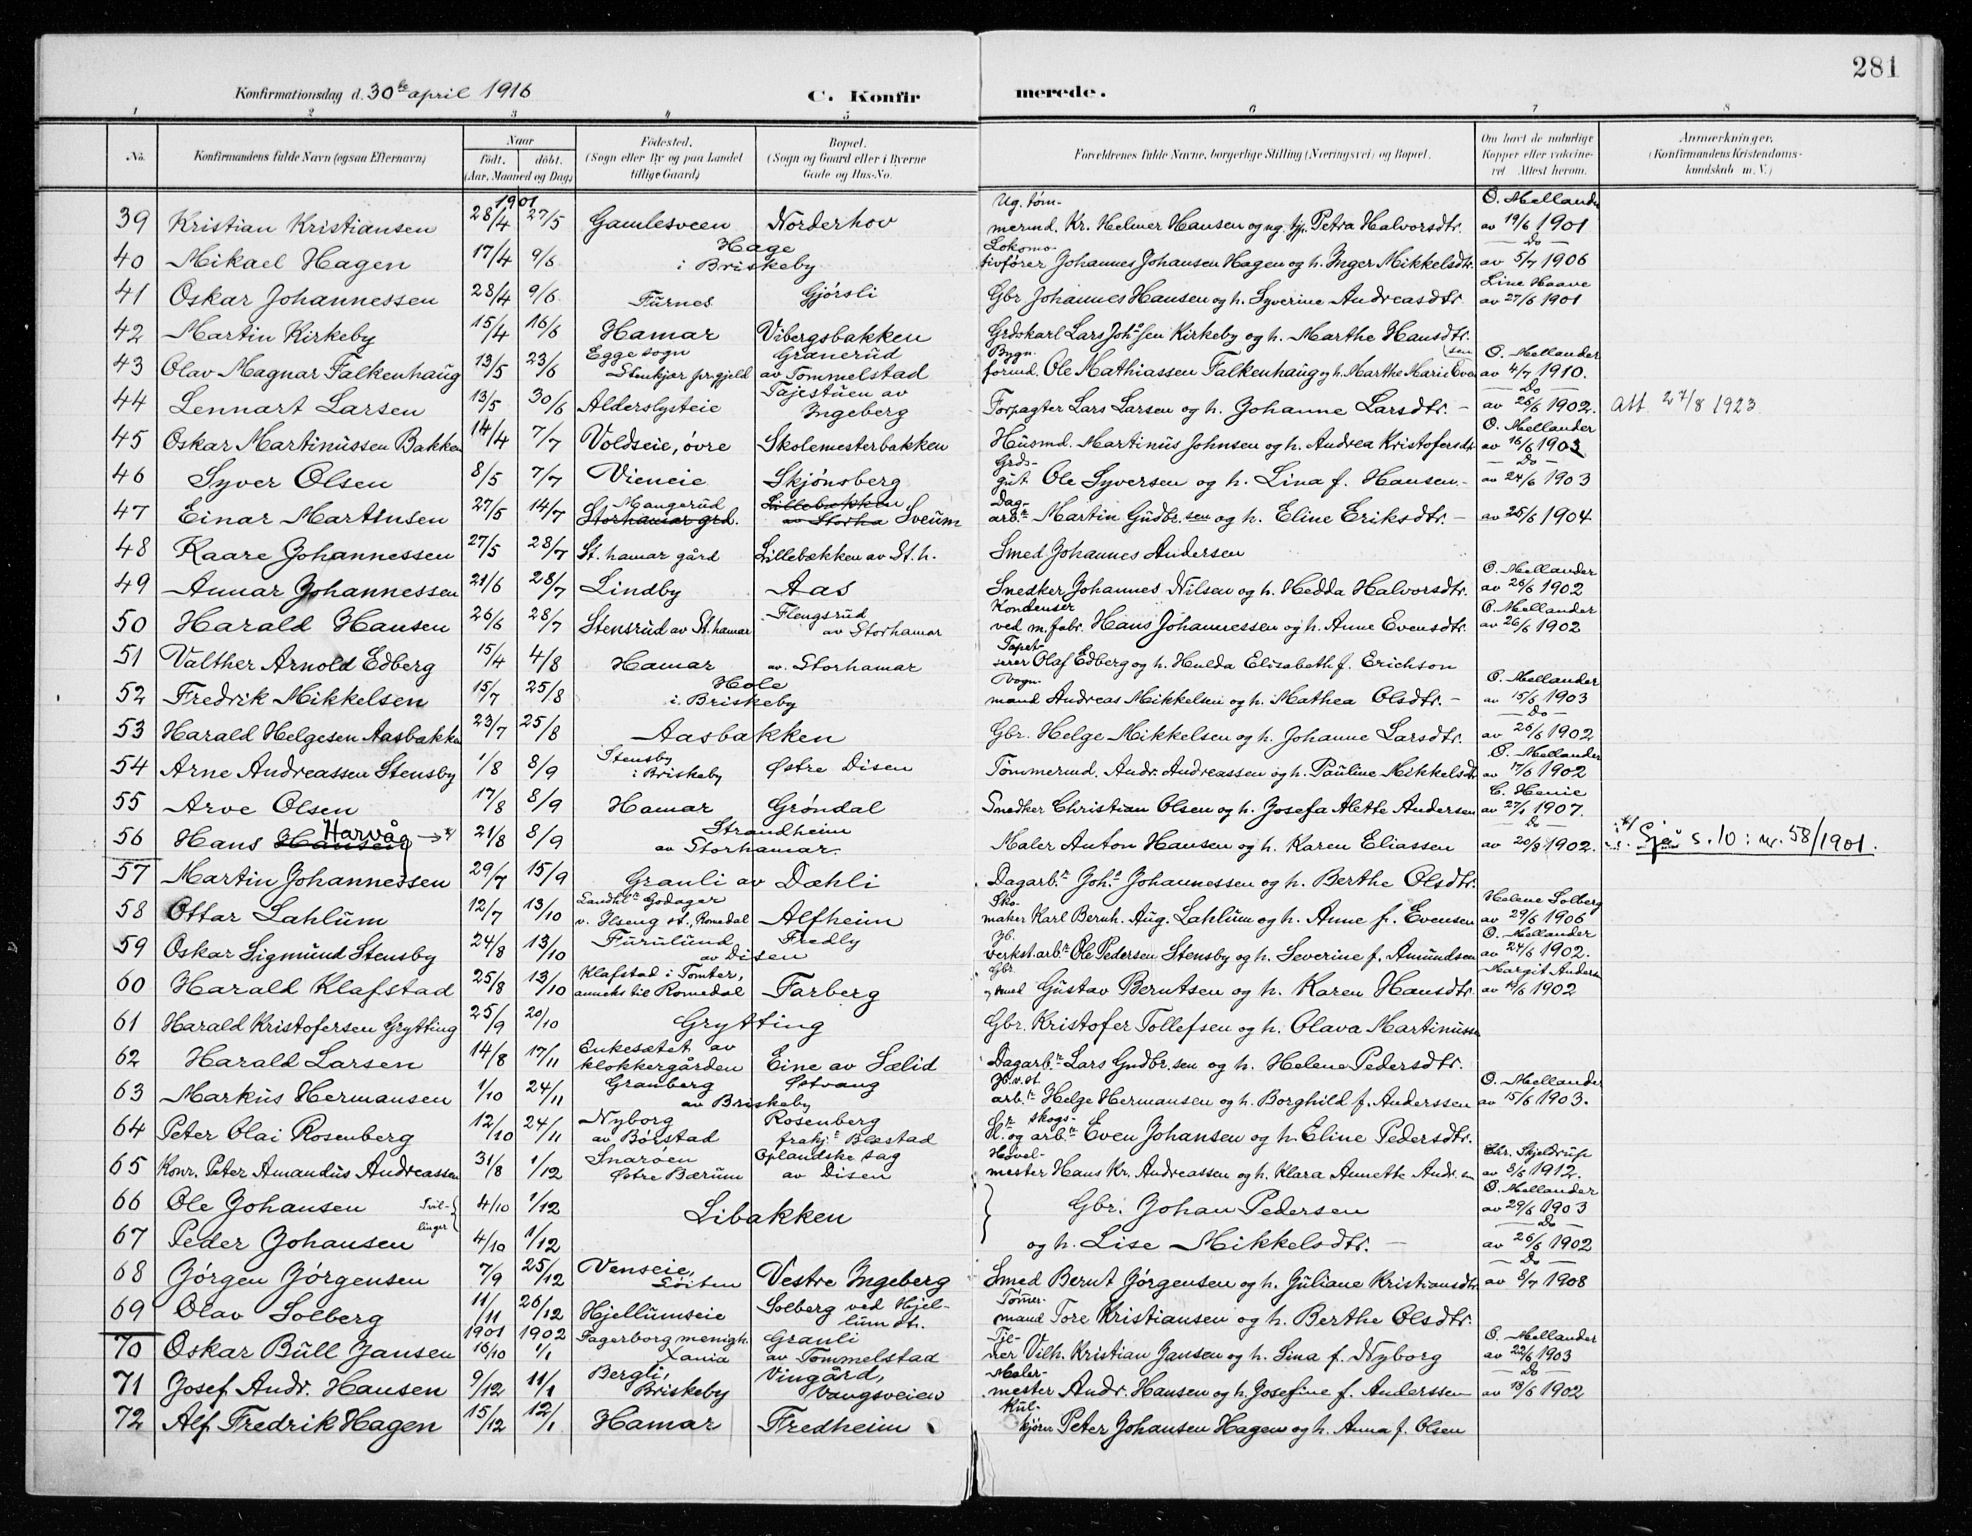 281
Konfirmationsdag d. 30te april 1916 C. Konfir merede.
1 2 3 4 5 6 7 8
No. Konfirmandens fulde Navn (ogsaa Efternavn) Naar født. døbt. (Aar, Maaned og Dag) Fødested. (Sogn eller By og paa Landet tillige Gaard) Bopæl. (Sogn og Gaard eller i Byerne Gade og Hus-No. Forældrenes fulde Navne, borgerlige Stilling (Næringsvei) og Bopæl. Om havt de naturlige Kopper eller vaksineret Attest herom. Anmærkninger. (Konfirmandens Kristendomskundskab m. V.)
1901
39 Kristian Kristiansen 28/4 27/5 Gamlesveen Norderhov Ug. tømmermd. Kr. Helmer Hansen og ug. tjp. Petra Halvorsdtr. O. Mellander av 19/6 1901
40 Mikael Hagen 17/4 9/6 Hage i Briskeby Lokomotivfører Johannes Johansen Hagen og h. Inger Mikkelsdtr. Do av 5/7 1906
41 Oskar Johannessen 28/4 9/6 Furnes Gjørsli Gbr Johannes Hansen og h. Syverine Andreasdtr. Line Haave av 27/6 1901
42 Martin Kirkeby 15/4 16/6 Hamar Vibergsbakken Grdskarl Lars Joh.sen Kirkeby og h. Marthe Hansdtr.
43 Olav Magnar Falkenhaug 13/5 23/6 Egge sogn Stenkjær prgjeld Granerud av Tommelstad Bygn. formd. Ole Mathiassen Falkenhaug og h. Marthe Marie Evensen O. Mellander av 4/7 1910.
44 Lennart Larsen 13/5 30/6 Alderslysteie Tajestuen av Ingeberg Forpagter Lars Larsen og h. Johanne Larsdtr. - Do av 26/6 1902. Att. 27/8 1923
45 Oskar Martinussen Bakken 14/4 7/7 Voldseie, øvre Skolemesterbakken Husmd. Martinus Johnsen og h. Andrea Kristofersdtr O. Mellander av 16/6 1903
46 Syver Olsen 8/5 7/7 Vieneie Skjønsberg Grdsgut Ole Syversen og h. Lina f. Hansen. - Do av 24/6 1903
47 Einar Martinsen 27/5 14/7 Mangerud Storhamar grd. Lillebækken av Storha Sveum Dagarbr Martin Gudbr.sen og h. Eline Eriksdtr. - av 25/6 1904
48 Kaare Johannessen 27/5 28/7 St. hamar gård Lillebækken av St. h. Smed Johannes Andersen
49 Annar Johannessen 21/6 28/7 Lindby Aas Snedker Johannes Nilsen og h. Hedda Halvorsdtr. O. Mellander av 26/6 1902
50 Harald Hansen 26/6 28/7 Stensrud av St. hamar Flengsrud av Storhamar Kondenser ved m. fabr. Hans Johannessen og h. Anne Evensdtr. O. Mellander av 26/6 1902
51 Valther Arnold Edberg 15/4 4/8 Hamar av Storhamar Tapetserer Olaf Edberg og h. Hulda Elizabeth f. Erichson
52 Fredrik Mikkelsen 15/7 25/8 Hole i Briskeby Vognmand Andreas Mikkelsen og h. Mathea Olsdtr. - O. Mellander av 15/6 1903
53 Harald Helgesen Aasbakken 23/7 25/8 Aasbakken Gbr. Helge Mikkelsen og h. Johanne Larsdtr. Do av 26/6 1902
54 Arne Andreassen Stensby 1/8 8/9 Stensby i Briskeby Østre Disen Tømmermd. Andr. Andreassen og h. Pauline Mikkelsdt O. Mellander av 17/6 1902
55 Arve Olsen 17/8 8/9 Hamar Grøndal Snedker Christian Olsen og h. Josefa Alette Andersen C. Henie av 27/1 1907.
56 Hans Hansen Harvåg →*/ 21/8 8/9 Strandheim av Storhamar. Maler Anton Hansen og h. Karen Eliassen Do av 20/8 1902. */ Sjå s. 10: nr. 58/1901.
57 Martin Johannessen 29/7 15/9 Granli av Dæhli Dagarbr. Joh.s Johannessen og h. Berthe Olsdtr.
58 Ottar Lahlum 12/7 13/10 Landhl. Godager v. Ilseng st., Romedal Alfheim Skomaker Karl Bernh. Aug. Lahlum og h. Anne f. Evensen Helene Solberg av 29/6 1906
59 Oskar Sigmund Stensby 24/8 13/10 Furulund Fredly av Disen Jb. verkst.arbr. Ole Pedersen Stensby og h. Severine f. Amundsen O. Mellander av 24/6 1902.
60 Harald Klafstad 25/8 13/10 Klafstad i Tomter, anneks til Romedal Farberg Gbr. smed Gustav Berntsen og h. Karen Hansdtr. Margit Andersn av 18/6 1902
61 Harald Kristofersen Grytting 25/9 20/10 Grytting Gbr. Kristofer Tollefsen og h. Olava Martinussn
62 Harald Larsen 14/8 17/11 Enkesætet av klokkergården Eine av Sælid Dagarbr. Lars Gudbr.sen og h. Helene Pedersdtr.
63 Markus Hermansen 1/10 24/11 Granberg Østvang av Briskeby Jb. v. st. arbr. Helge Hermansen og h. Borghild f. Anderssen O. Mellander av 15/6 1903.
64 Peter Olai Rosenberg 12/10 24/11 Nyborg av Børstad Rosenberg frakj. Blæstad Gr. og skogsarbr. Even Johansen og h. Eline Pedersdtr.
65 Konr. Peter Amandus Andreassen 31/8 1/12 Snarøen Østre Bærum Oplandske sag av Disen Høvelmester Hans Kr. Andreassen og h. Klara Annette Andr.sen Chr. Skjeldrup av 8/6 1912.
66 Ole Johansen Tvil- 4/10 1/12 Libakken Gbr. Johan Pedersen O. Mellander av 29/6 1903
67 Peder Johansen linger 4/10 1/12 og h. Lise Mikkelsdtr. - Do av 26/6 1902
68 Jørgen Jørgensen 7/9 25/12 Venseie, Løiten Vestre Ingeberg Smed Bernt Jørgensen og h. Juliane Kristiansdtr Do av 8/7 1908
69 Olav Solberg 11/11 26/12 Hjellumseie Solberg ved Hjellum st. Tømmermand Tore Kristiansen og h. Berthe Olsdtr.
70 Oskar Bull Jansen 1901 16/10 1902 1/1 Fagerborg menigh. Xania Granli av Tommelstad Tjener Vilh. Kristian Jansen og h. Lina f. Nyborg O. Mellander av 22/6 1903
71 Josef Andr. Hansen 9/12 11/1 Bergli, Briskeby Vingård, Vangsveien Malermester Andr. Hansen og h. Josefine f. Anderssen Do av 18/6 1902
72 Alf Fredrik Hagen 15/12 12/1 Hamar Fredheim Kulkjører Peter Johansen Hagen og h. Anna f. Olsen